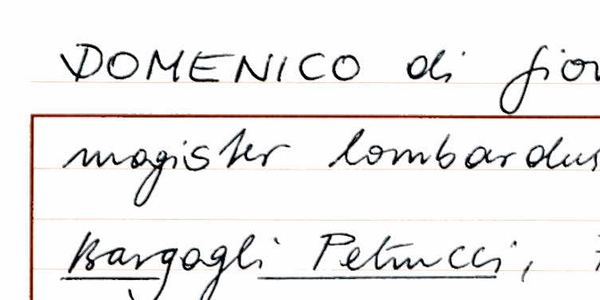 DOMENICO di
magister lombardus
Bargagli Petrucci,